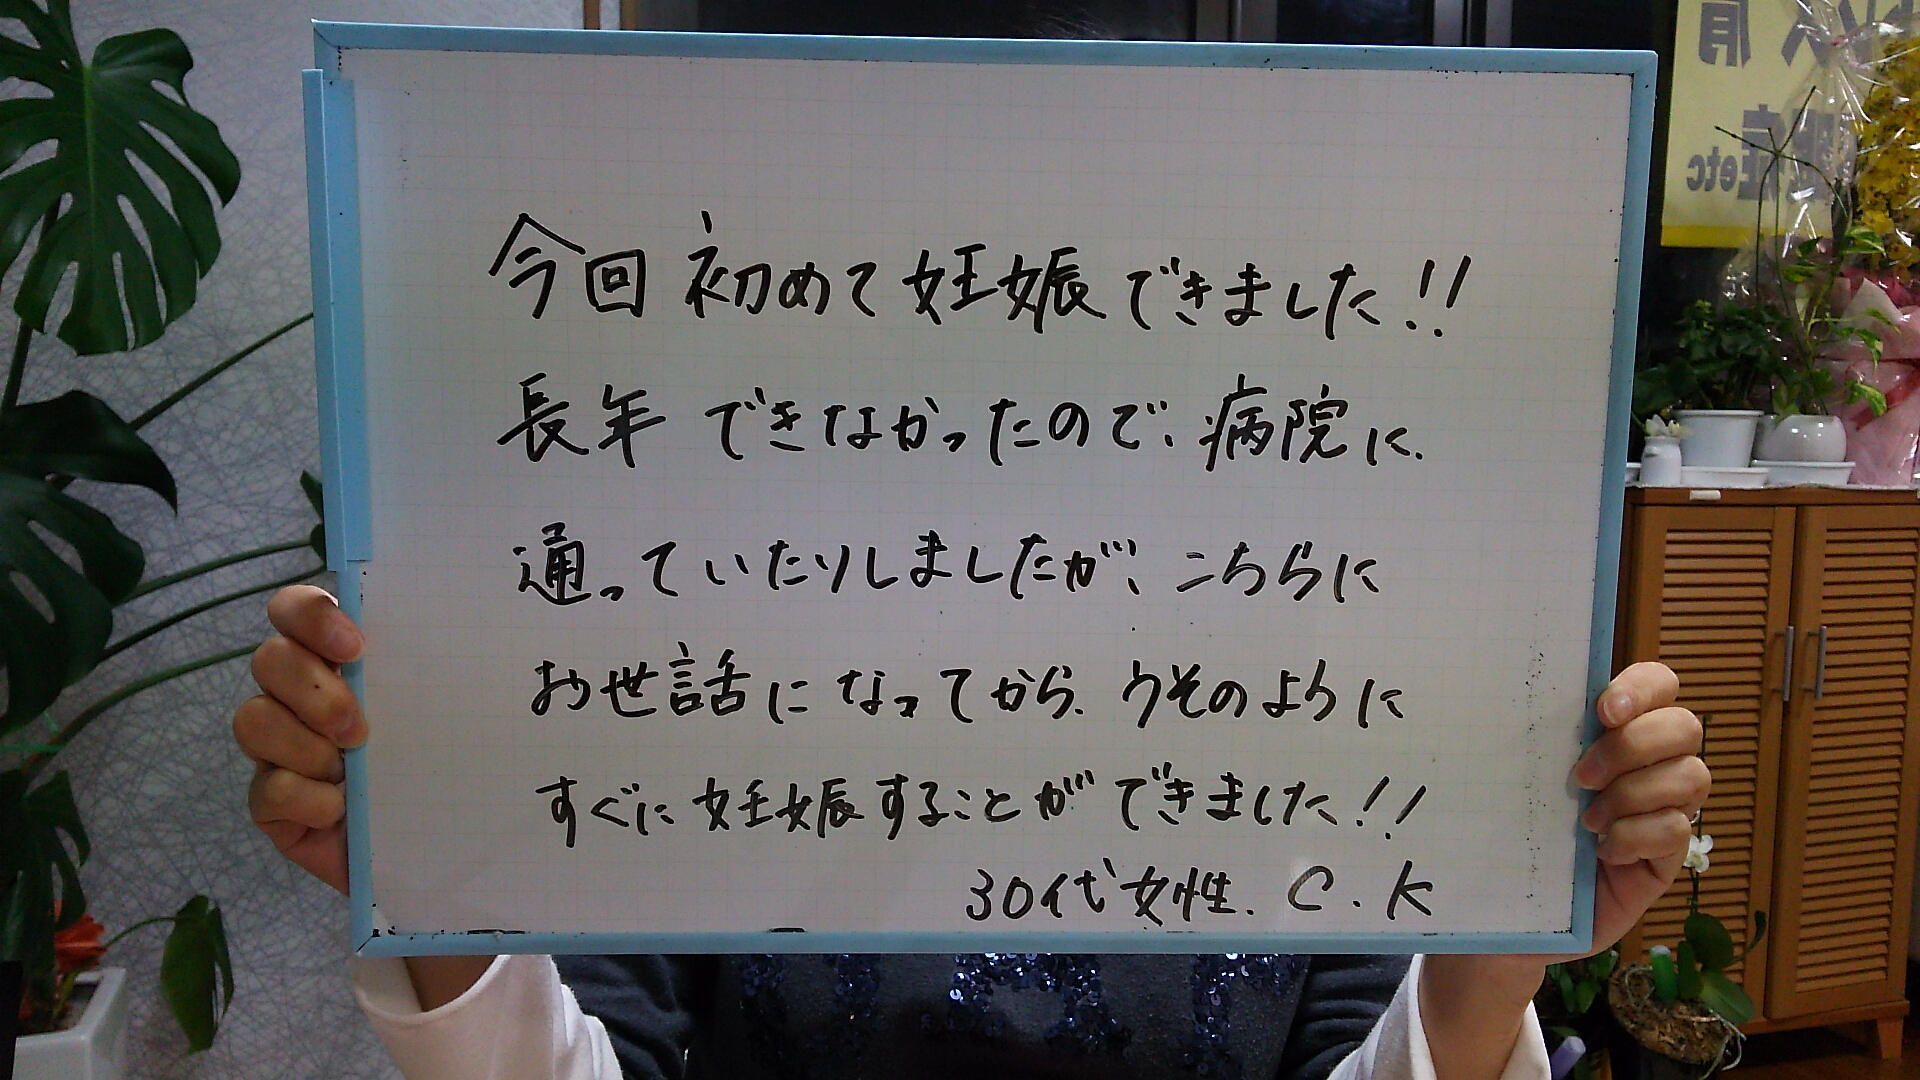 今回初めて妊娠できました!!
長年できなかったので、病院に、
通っていたりしましたが、こちらに
お世話になってから、ウソのように
すぐに妊娠することができました!!
30代女性、C.K
肩
症etc